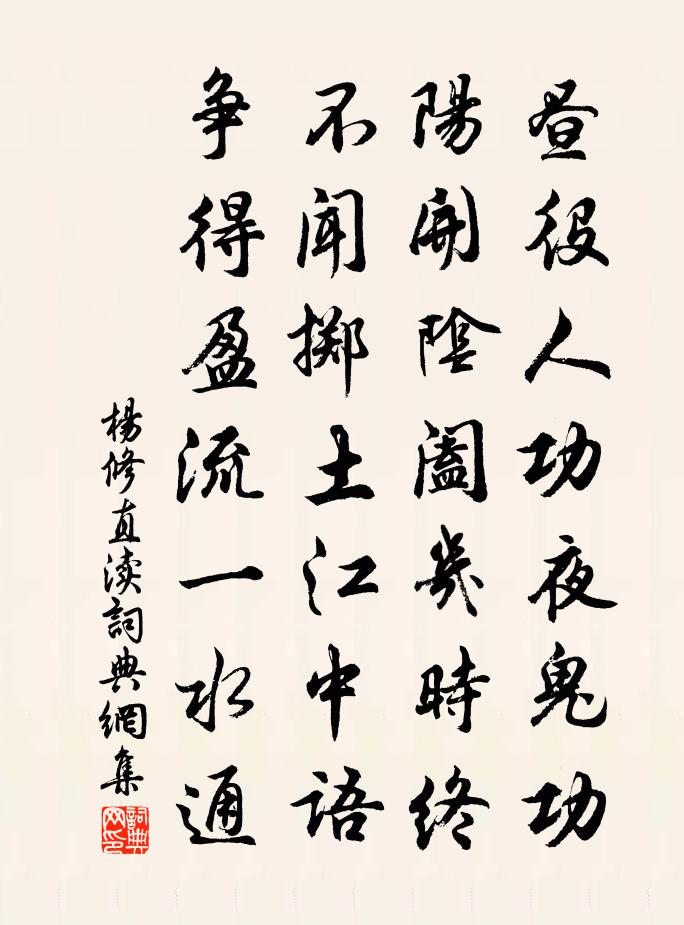 昼役人功夜鬼功
陽開陰闔幾時終
不聞擲土江中語
争得盈流一水通
楊修直渎詞典網集
詞典網印